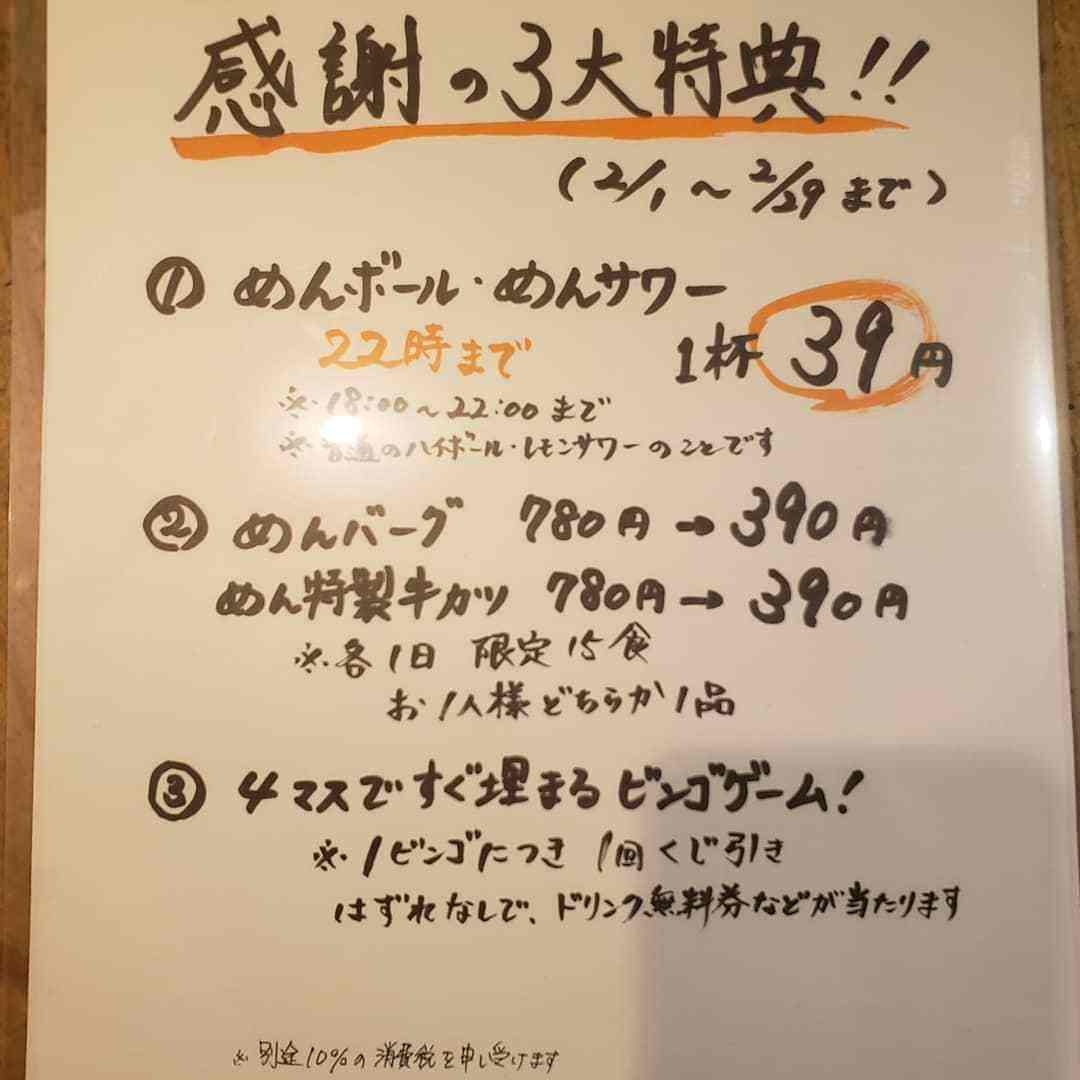 感謝の3大特典!!
(2/1～2/29まで)
① めんボール・めんサワー
22時まで 1杯 39円
※18:00～22:00まで
※普通のハイボール・レモンサワーのことです
② めんバーグ 780円→390円
めん特製牛カツ 780円→390円
※各1日 限定15食
お1人様どちらか1品
③ 4マスですぐ埋まるビンゴゲーム!
※1ビンゴにつき 1回くじ引き
はずれなしで、ドリンク無料券などが当たります
※別途10%の消費税を申し受けます